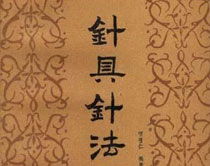 針具針法